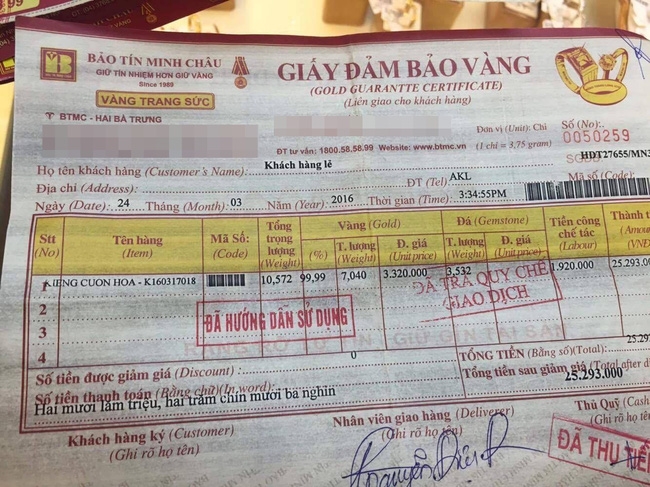 BẢO TÍN MINH CHÂU
GIỮ TÍN NHIỆM HƠN GIỮ VÀNG
Since 1989
VÀNG TRANG SỨC
GIẤY ĐẢM BẢO VÀNG
(GOLD GUARANTTE CERTIFICATE)
(Liên giao cho khách hàng)
BTMC - HAI BÀ TRƯNG
ĐT tư vấn: 1800.58.58.99 Website: www.btmc.vn
Đơn vị (Unit): Chỉ
(1 chỉ = 3,75 gram)
Số (No):
0050259
HDT27655/MN3
Họ tên khách hàng (Customer's Name): Khách hàng lẻ
Địa chỉ (Address): ĐT (Tel) AKL Mã số (Code)
Ngày (Date) 24 Tháng (Month) 03 Năm (Year) 2016 Thời gian (Time) 3:34:55PM
Stt (No) Tên hàng (Item) Mã Số: (Code) Tổng trọng lượng (Weight) Vàng (Gold) (%) T. lượng (Weight) Đ. giá (Unit price) Đá (Gemstone) T. lượng (Weight) Đ. giá (Unit price) Tiền công chế tác (Labour) Thành (Amou VNĐ
1 IENG CUON HOA - K160317018 10,572 99,99 7,040 3.320.000 3,532 1.920.000 25.293.00
2
3
4
ĐÃ HƯỚNG DẪN SỬ DỤNG
ĐÃ TRA QUY CHẾ
GIAO DỊCH
Số tiền được giảm giá (Discount) 0 TỔNG TIỀN (Bằng số)(Total): 25.29
Tổng tiền sau giảm giá (Total after d
25.293.000
Số tiền thanh toán (Bằng chữ)(In word):
Hai mươi lăm triệu, hai trăm chín mươi ba nghìn
Khách hàng ký (Customer)
(Ghi rõ họ tên)
Nhân viên giao hàng (Deliverer)
(Ghi rõ họ tên)
Thủ Quỹ (Cash
(Ghi rõ họ
ĐÃ THU TIỀN